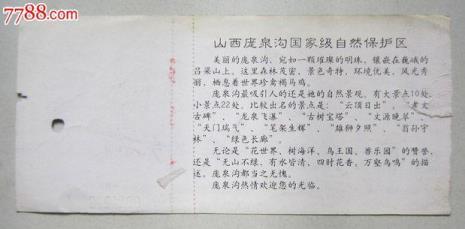 7788.com
山西庞泉沟国家级自然保护区
美丽的庞泉沟，宛如一颗璀璨的明珠，镶嵌在巍峨的
吕梁山上。这里森林茂密、景色奇特，环境优美，风光秀
丽，栖息着世界珍禽褐马鸡。
庞泉沟最吸引人的还是她的自然景观，有大景点10处，
小景点22处，比较出名的景点是：“云顶日出”、“孝文
古碑”、“龙泉飞瀑”、“古树宝塔”、“文源晚翠”、
“天门瑞气”、“笔架生辉”、“雄狮夕照”、“百孙守
林”、“绿色长廊”
无论是“花世界、树海洋、鸟王国、兽乐园”的赞誉，
还是“无山不绿，有水皆清，四时花香，万壑鸟鸣”的描
述，庞泉沟都当之无愧。
庞泉沟热情欢迎您的光临。